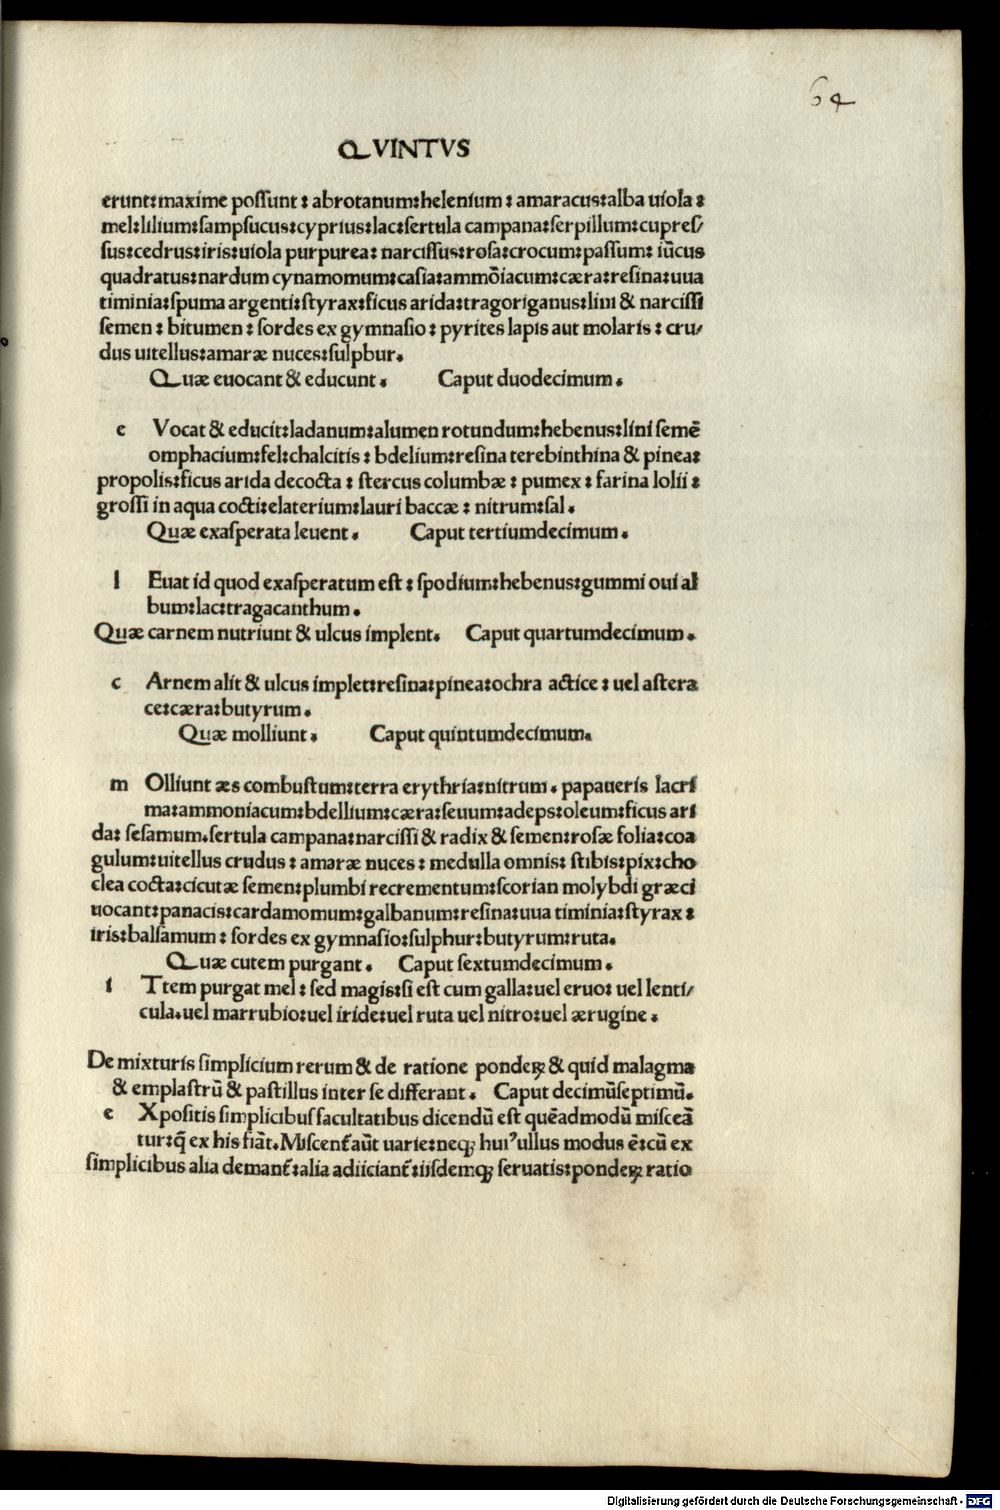 64
QVINTVS
erunt:maxime possunt : abrotanum:helenium : amaracus:alba uiola :
mel:lilium:sampsucus:cyprius:lac:sertula campana:serpillum:cupres/
sus:cedrus:iris:uiola purpurea: narcissus:rosa:crocum:passum: iūcus
quadratus:nardum cynamomum:casia:ammōiacum:cæra:resina:uua
timinia:spuma argenti:styrax:ficus arida:tragoriganus:lini & narcissi
semen : bitumen : sordes ex gymnasio : pyrites lapis aut molaris : cru/
dus uitellus:amaræ nuces:sulpbur.
Quæ euocant & educunt. Caput duodecimum.
e Vocat & educit:ladanum:alumen rotundum:hebenus:lini semē
omphacium:fel:chalcitis : bdelium:resina terebinthina & pinea:
propolis:ficus arida decocta : stercus columbæ : pumex : farina lolii :
grossi in aqua cocti:elaterium:lauri baccæ : nitrum:sal.
Quæ exasperata leuent. Caput tertiumdecimum.
l Euat id quod exasperatum est : spodium:hebenus:gummi oui al
bum:lac:tragacanthum.
Quæ carnem nutriunt & ulcus implent. Caput quartumdecimum.
c Arnem alit & ulcus implet:resina:pinea:ochra actice : uel astera
ce:cæra:butyrum.
Quæ molliunt. Caput quintumdecimum.
m Olliunt æs combustum:terra erythria:nitrum. papaueris lacri
ma:ammoniacum:bdellium:cæra:seuum:adeps:oleum:ficus ari
da: sesamum.sertula campana:narcissi & radix & semen:rosæ folia:coa
gulum:uitellus crudus : amaræ nuces : medulla omnis: stibis:pix:cho
clea cocta:cicutæ semen:plumbi recrementum:scorian molybdi græci
uocant:panacis:cardamomum:galbanum:resina:uua timinia:styrax :
iris:balsamum : sordes ex gymnasio:sulphur:butyrum:ruta.
Quæ cutem purgant. Caput sextumdecimum.
i Ttem purgat mel : sed magis:si est cum galla:uel eruo: uel lenti/
cula.uel marrubio:uel iride:uel ruta uel nitro:uel ærugine.
De mixturis simplicium rerum & de ratione pondeꝝ & quid malagma
& emplastrū & pastillus inter se differant. Caput decimūseptimū.
e Xpositis simplicibus facultatibus dicendū est quēadmodū misceā
tur:q̄ ex his fiāt. Miscent᷑ aūt uarie:neqꝫ huiꝰ ullus modus ē:cū ex
simplicibus alia demant᷑:alia adiiciant᷑:iisdemqꝫ seruatis:pondeꝝ ratio
Digitalisierung gefördert durch die Deutsche Forschungsgemeinschaft - DFG